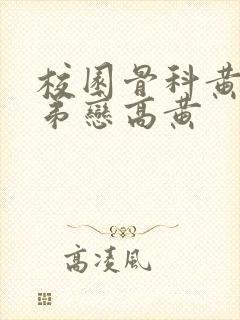 校園骨科黃
弟戀高黃
高凌風